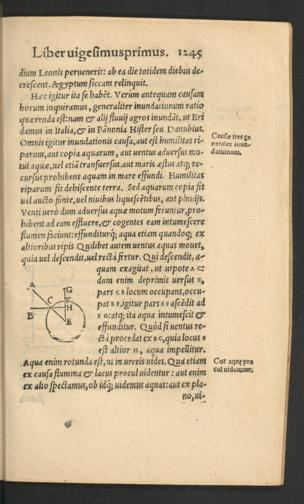 Liber uigesimusprimus. 1245
dium Leonis peruenerit: ab ea die totidem diebus de-
crescens, Aegyptum siccam relinquit.
Haec igitur ita se habēt. Verum antequam causam
horum inquiramus, generaliter inundationum ratio
quærenda est: nam & alij fluuij agros inundāt, ut Eri
damus in Italia, & in Pānonia Hister seu Danubius.
Omnis igitur inundationis causa, aut est humilitas ri-
parum, aut copia aquarum, aut uentus aduersus mo-
tui aquæ, uel etiā transuersus, aut maris æstus atq; re-
cursus prohibens aquam in mare effundi. Humilitas
riparum fit dehiscente terra. Sed aquarum copia fit
uel aucto fonte, uel niuibus liquescētibus, aut pluuijs.
Venti uerò dum aduersus aquæ motum feruntur, pro-
hibent ad eam effluere, & cogentes eam intumescere
flumen faciunt: effunditurq; aqua etiam quandoq; ex
altioribus ripis. Quilibet autem uentus aquas mouet,
quia uel descendit, uel rectà fertur. Qui descendit, a-
quam exagitat, ut utpote A C:
dum enim deprimit uersus E,
pars C E locum occupans, occu-
pat E F, igitur pars E F ascēdit ad
F G: atq; ita aqua intumescit &
effunditur. Quòd si uentus re-
ctà procedat ex B C, quia locus B
est altior H, aqua impellitur.
Aqua enim rotunda est, ut in urceis uides. Qua etiam
ex causa flumina & lacus procul uidentur: aut enim
ex alto spectamus, ob idq; uidemus aquas: aut ex pla-
no, ui-
Causæ tres ge
nerales inun-
dationum.
Cur aquæ pro
cul uideantur.
A
G
F
B
C
H
E